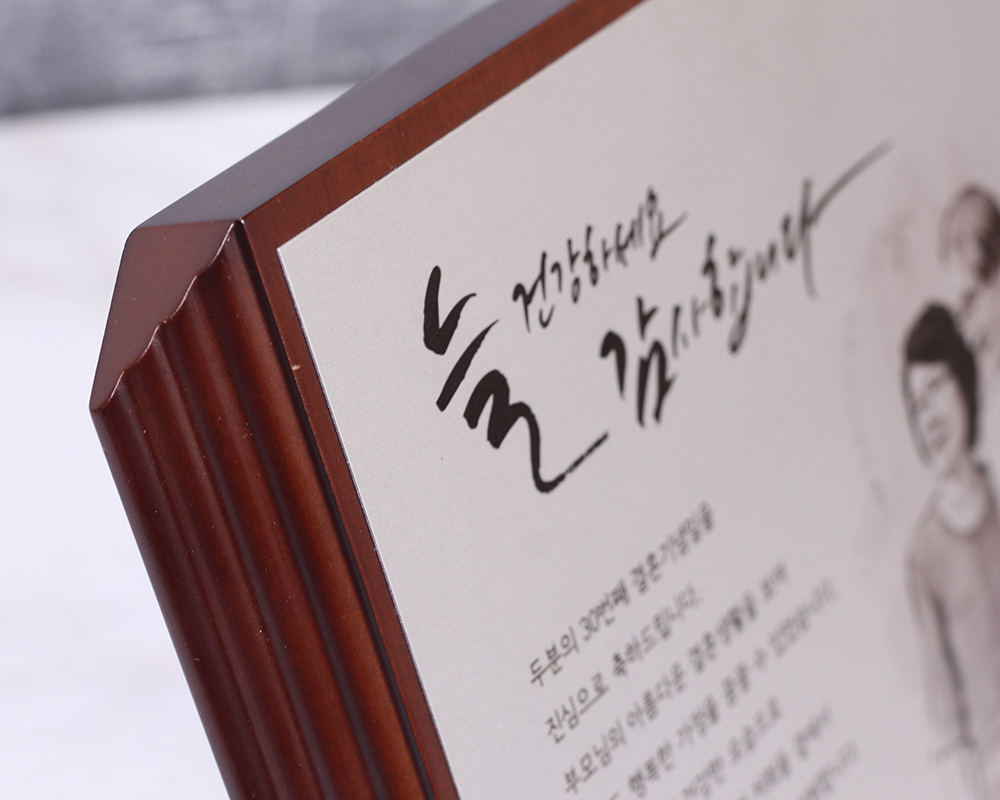 늘 건강하세요
감사합니다
두분의 30번째 결혼기념일을
진심으로 축하드립니다.
부모님의 아름다운 결혼생활을 보며
행복한 가정을 꿈꿀 수 있었습니다
건강한 모습으로